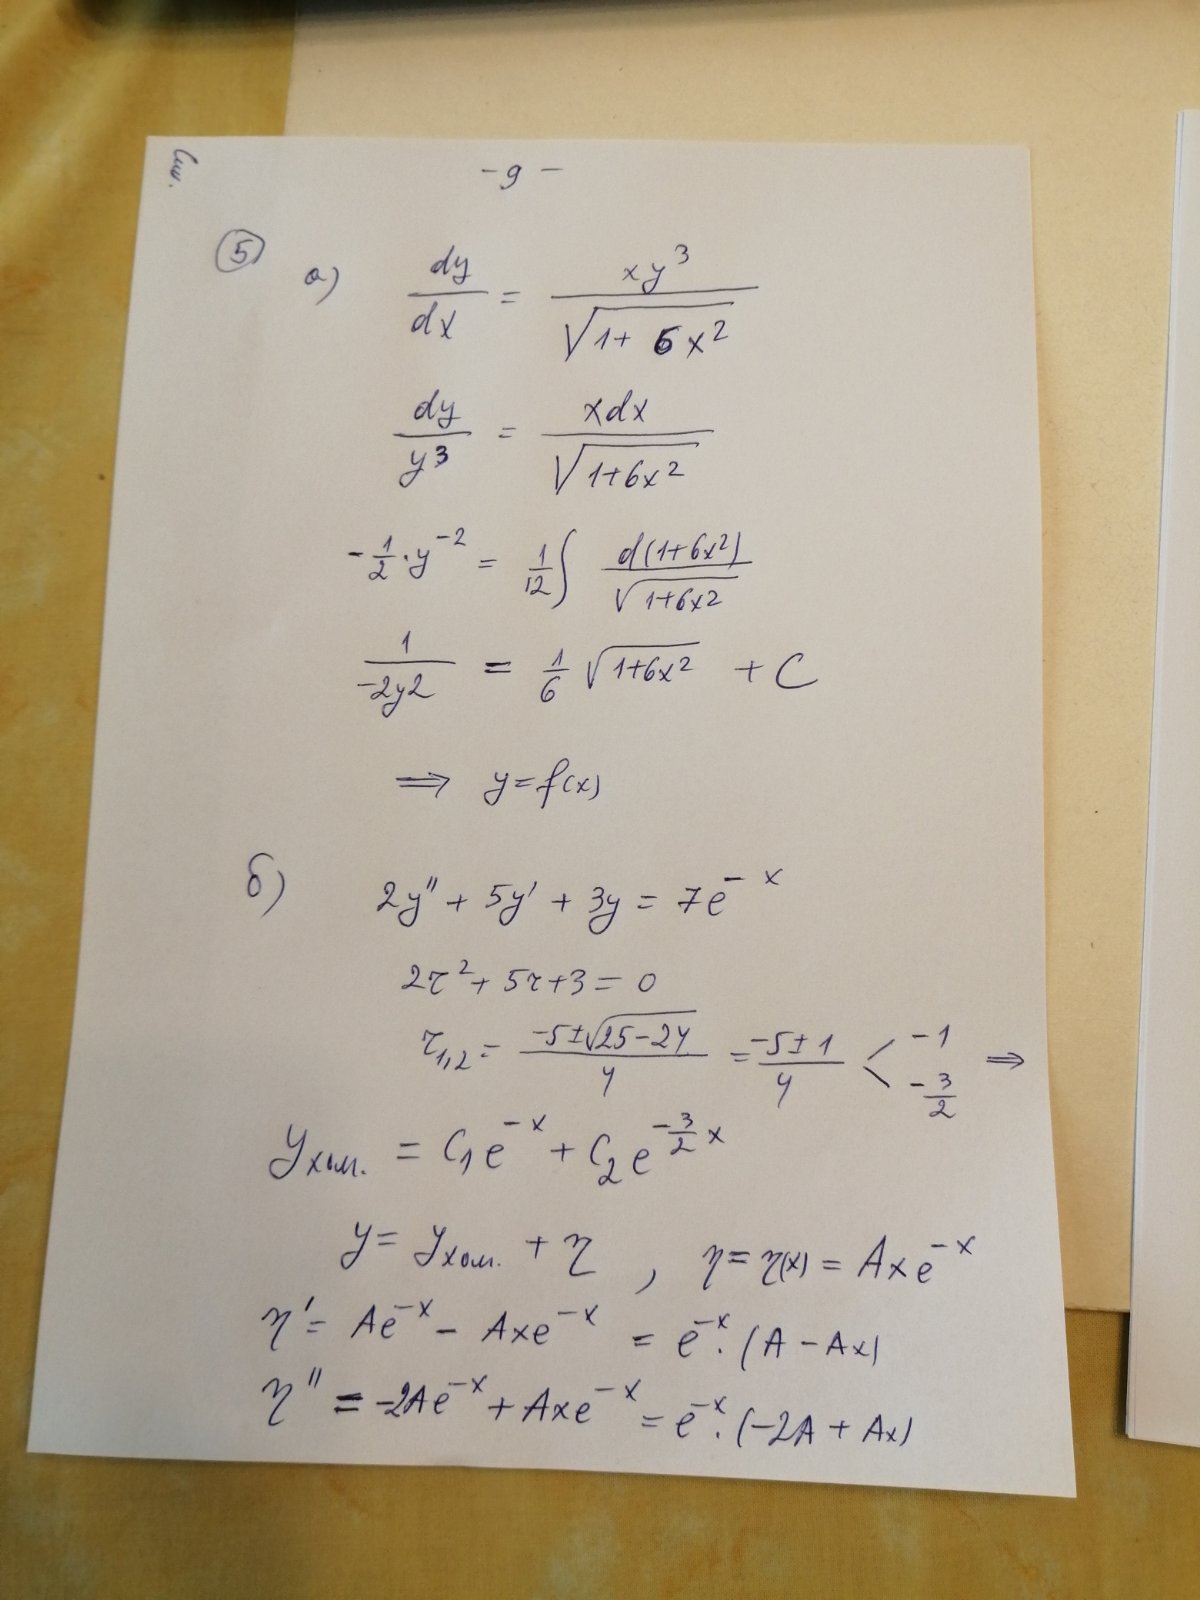 - 9 -
5) а) dy/dx = xy³/√(1+6x²)
dy/y³ = xdx/√(1+6x²)
-1/2 · y⁻² = 1/12 ∫ d(1+6x²)/√(1+6x²)
1/(-2y2) = 1/6 √(1+6x²) + C
⟹ y=f(x)
б) 2y'' + 5y' + 3y = 7e^(-x)
2r² + 5r + 3 = 0
r₁,₂ = (-5±√(25-24))/4 = (-5±1)/4 < -1, -3/2 ⟹
y хом. = C₁e^(-x) + C₂e^(-3/2 x)
y = y хом. + η , η = η(x) = Axe^(-x)
η' = Ae^(-x) - Axe^(-x) = e^(-x) · (A - Ax)
η'' = -2Ae^(-x) + Axe^(-x) = e^(-x) · (-2A + Ax)